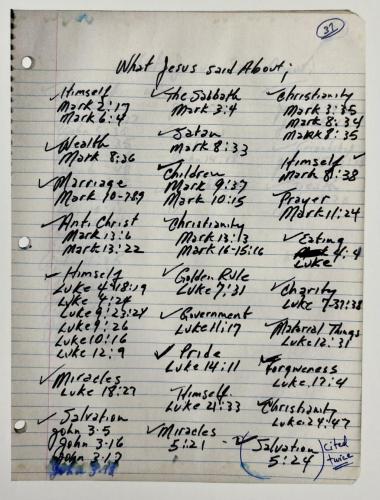 37
What Jesus said About;
Himself
Mark 2:17
Mark 6:4
Wealth
Mark 8:36
Marriage
Mark 10-789
Anti Christ
Mark 13:6
Mark 13:22
Himself
Luke 4-18:19
Luke 4:24
Luke 9:23:24
Luke 9:26
Luke 10:16
Luke 12:9
Miracles
Luke 18:27
Salvation
John 3:5
John 3-16
John 3-17
John 3-18
The Sabbath
Mark 3:4
Satan
Mark 8:33
Children
Mark 9:37
Mark 10:15
Christianity
Mark 13:13
Mark 16-15:16
Golden Rule
Luke 7:31
Government
Luke 11:17
Pride
Luke 14:11
Himself
Luke 21:33
Miracles
5:21
Christianity
Mark 3:35
Mark 8:34
Mark 8:35
Himself
Mark 8:38
Prayer
Mark 11:24
Eating
4:4
Luke
Charity
Luke 7-37:38
Material Things
Luke 12:31
Forgiveness
Luke 17:4
Christianity
Luke 24:47
Salvation
5:24
cited
twice